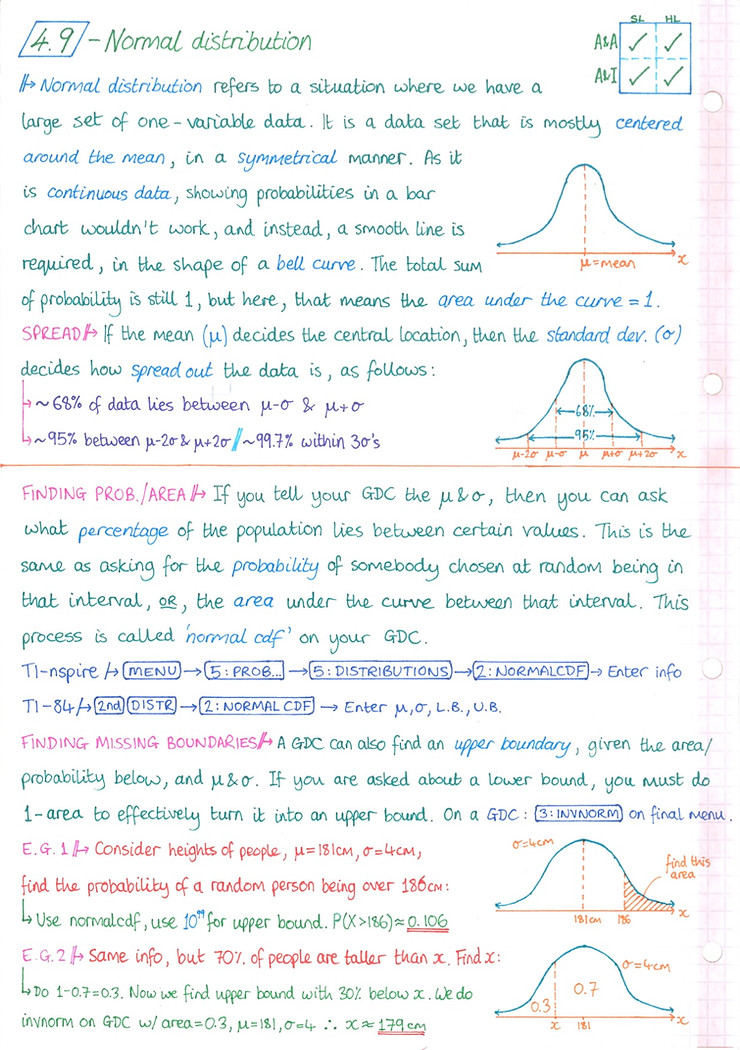 4.9 - Normal distribution
SL HL
A&A ✓ ✓
A&I ✓ ✓
↦ Normal distribution refers to a situation where we have a
large set of one-variable data. It is a data set that is mostly centered
around the mean, in a symmetrical manner. As it
is continuous data, showing probabilities in a bar
chart wouldn't work, and instead, a smooth line is
required, in the shape of a bell curve. The total sum
of probability is still 1, but here, that means the area under the curve = 1.
μ=mean x
SPREAD ↦ If the mean (μ) decides the central location, then the standard dev. (σ)
decides how spread out the data is, as follows:
↳ ~68% of data lies between μ-σ & μ+σ
↳ ~95% between μ-2σ & μ+2σ // ~99.7% within 3σ's
68%
95%
μ-2σ μ-σ μ μ+σ μ+2σ x
FINDING PROB./AREA ↦ If you tell your GDC the μ & σ, then you can ask
what percentage of the population lies between certain values. This is the
same as asking for the probability of somebody chosen at random being in
that interval, OR, the area under the curve between that interval. This
process is called 'normal cdf' on your GDC.
TI-nspire ↦ MENU → 5: PROB... → 5: DISTRIBUTIONS → 2: NORMALCDF → Enter info
TI-84 ↦ 2nd DISTR → 2: NORMAL CDF → Enter μ, σ, L.B., U.B.
FINDING MISSING BOUNDARIES ↦ A GDC can also find an upper boundary, given the area/
probability below, and μ & σ. If you are asked about a lower bound, you must do
1-area to effectively turn it into an upper bound. On a GDC: 3: INVNORM on final menu.
E.G.1 ↦ Consider heights of people, μ=181cm, σ=4cm,
find the probability of a random person being over 186cm:
↳ Use normalcdf, use 10^99 for upper bound. P(X>186)≈0.106
σ=4cm
find this
area
181cm 186 x
E.G.2 ↦ Same info, but 70% of people are taller than x. Find x:
↳ Do 1-0.7=0.3. Now we find upper bound with 30% below x. We do
invnorm on GDC w/ area=0.3, μ=181, σ=4 ∴ x≈179cm
σ=4cm
0.3 0.7
x 181